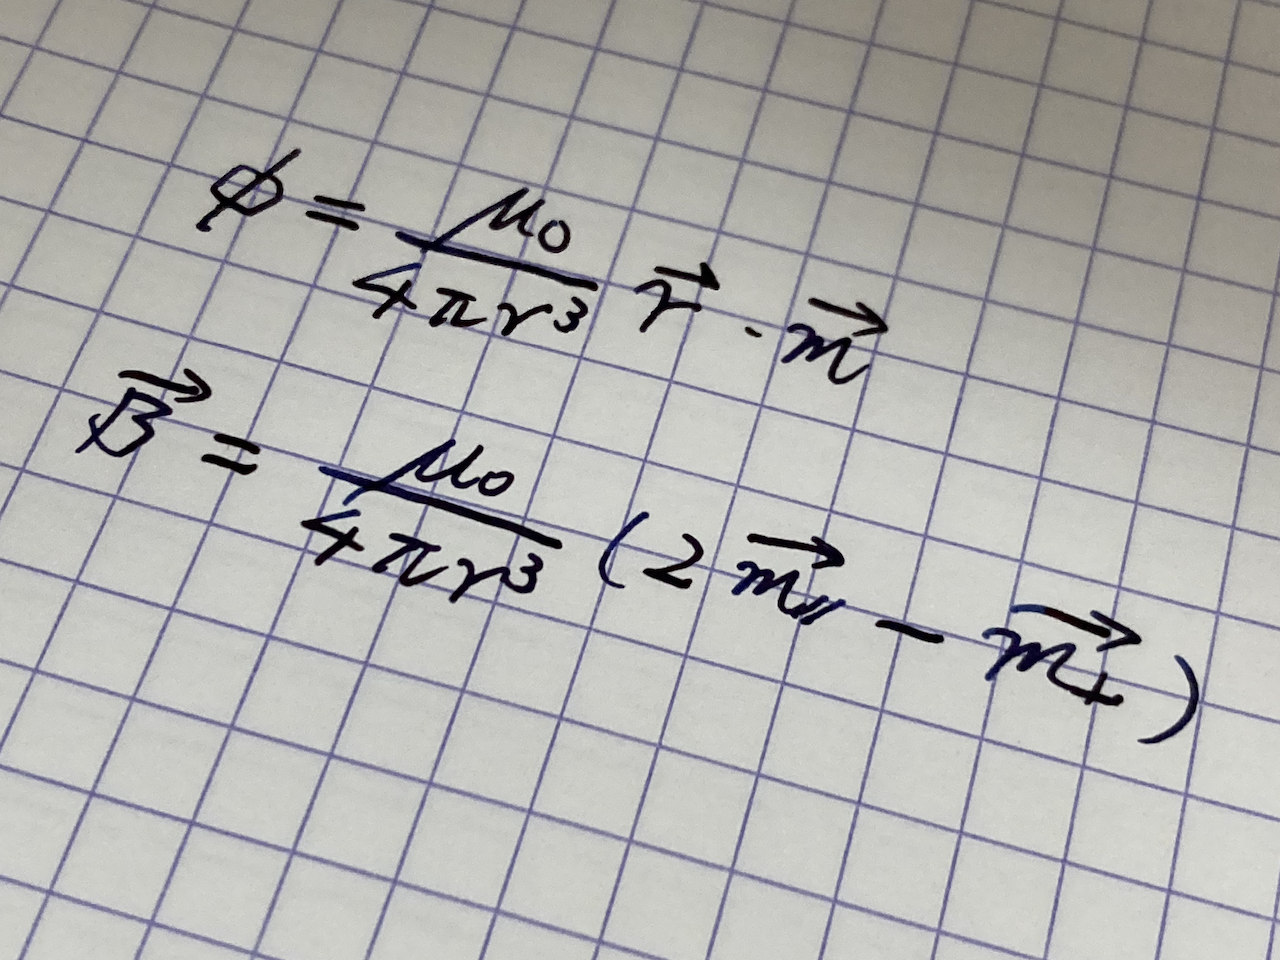 ϕ = μ₀/(4πr³) r⃗ · m⃗
B⃗ = μ₀/(4πr³) (2m⃗∥ − m⃗⊥)